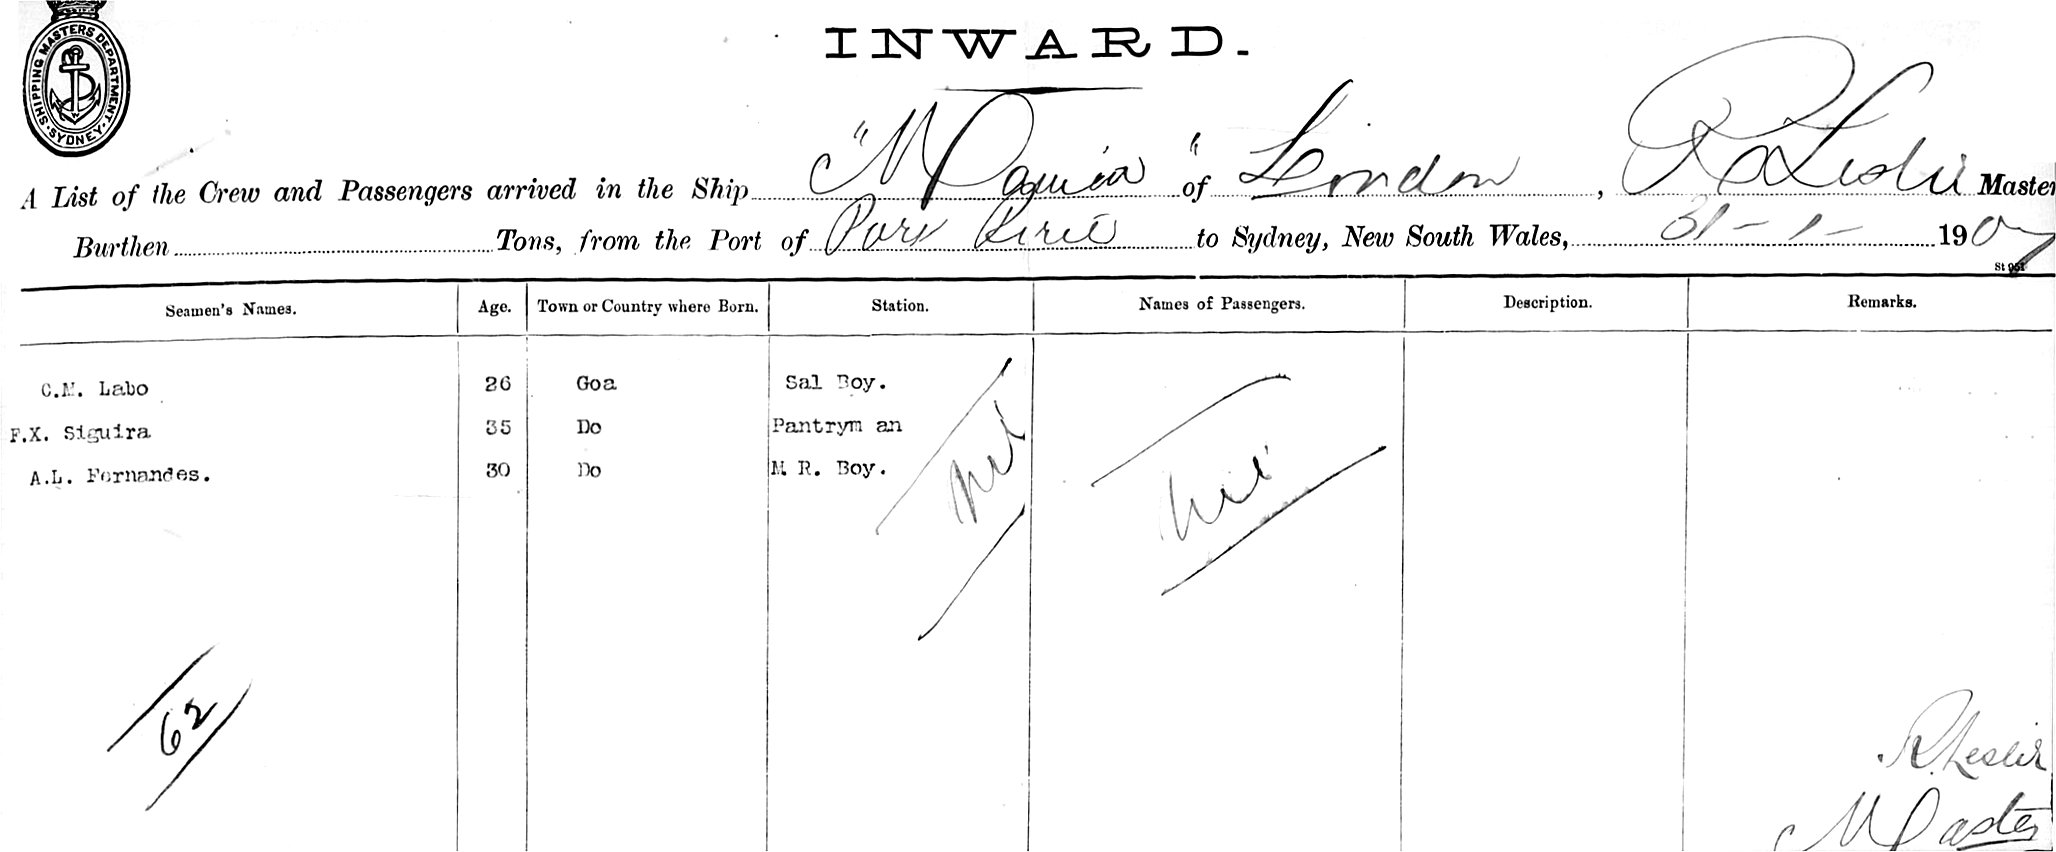 SHIPPING MASTERS DEPARTMENT · SYDNEY ·
INWARD.
A List of the Crew and Passengers arrived in the Ship of London, R Leslie Master
Burthen Tons, from the Port of Port Pirie to Sydney, New South Wales, 31-1-1907
Seamen's Names. Age. Town or Country where Born. Station. Names of Passengers. Description. Remarks.
C.M. Labo 26 Goa Sal Boy.
F.X. Siguira 35 Do Pantrym an
A.L. Fernandes. 30 Do M R. Boy.
nil nil
62
R. Leslie
Master